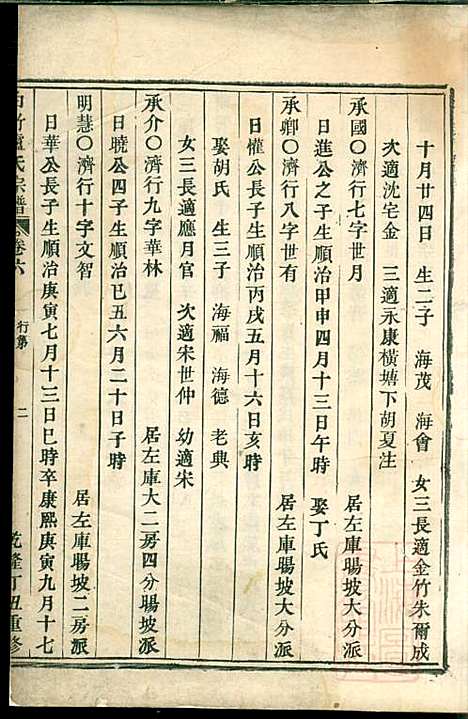 十月廿四日　生二子　海茂　海會　女三長適金竹朱爾成
次適沈宅金　三適永康橫塘下胡夏注
承國〇濟行七字世月　居左庫暘坡大分派
日進公之子生順治甲申四月十三日午時　娶丁氏
承卿〇濟行八字世有　居左庫暘坡大分派
日懽公長子生順治丙戌五月十六日亥時
娶胡氏　生三子　海福　海德　老典
女三長適應月官　次適宋世仲　幼適宋
承介〇濟行九字華林　居左庫大二房四分暘坡派
日曉公四子生順治己丑六月二十日子時
明慧〇濟行十字文智　居左庫暘坡二房派
日華公長子生順治庚寅七月十三日巳時卒康熙庚寅九月十七
竹盧氏宗譜　卷六　行第　二　乾隆丁丑重修